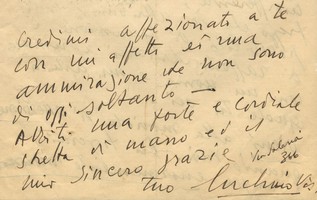 Credimi affezionato a te
con un affetto ed una
ammirazione che non sono
di oggi soltanto —
Abbiti una forte e cordiale
stretta di mano ed il
mio sincero grazie
tuo Luchino Vis
Via Salaria
366